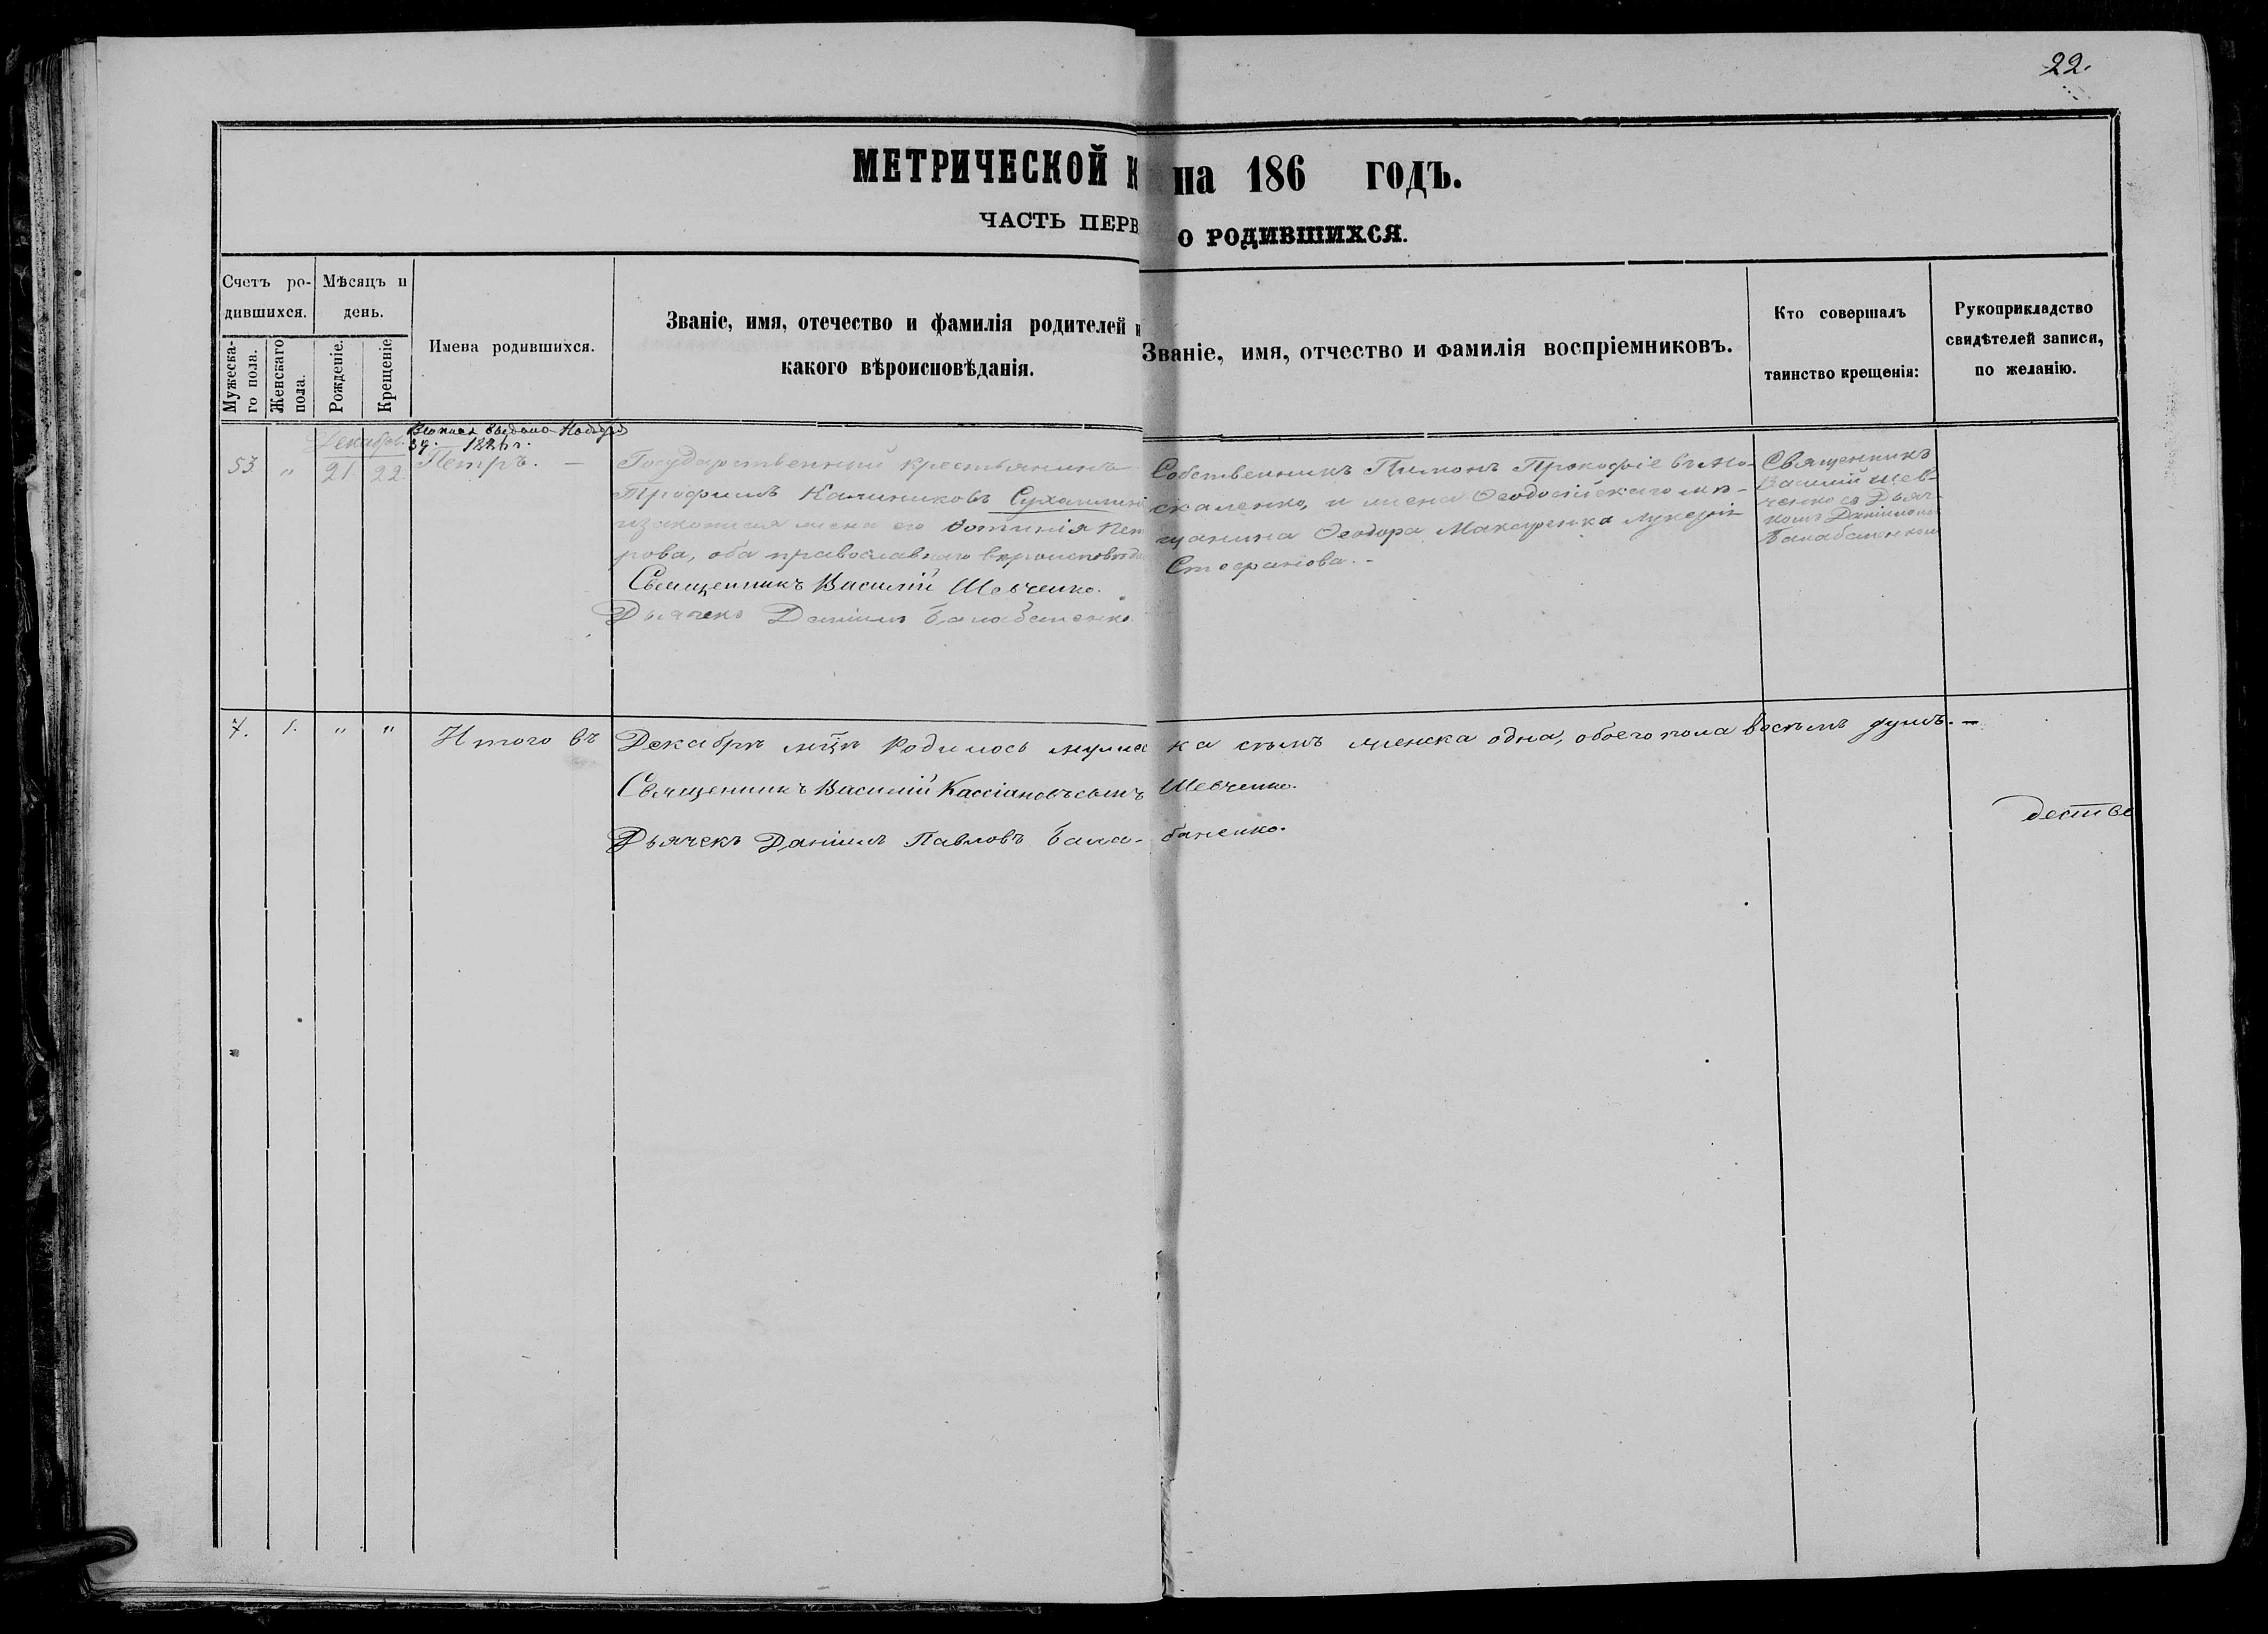 22.
МЕТРИЧЕСКОЙ К
на 186 ГОДЪ.
ЧАСТЬ ПЕРВ
О РОДИВШИХСЯ.
Счетъ ро-
дившихся.
Мужеска-
го пола.
Женскаго
пола.
Мѣсяцъ и
день.
Рожденіе.
Крещеніе
Имена родившихся.
Званіе, имя, отечество и фамилія родителей и
какого вѣроисповѣданія.
Званіе, имя, отчество и фамилія воспріемниковъ.
Кто совершалъ
таинство крещенія:
Рукоприкладство
свидѣтелей записи,
по желанію.
Декабрь.
53 " 21 22 Петръ. —
Государственный крестьянинъ
Трофимъ Калиниковъ
жена его Фотинія Пет
рова, оба православнаго вѣроисповѣда
Священникъ Василій Шевченко.
Дьячекъ Даніилъ Балабаненко
Собственникъ Пимонъ Прокофіевъ Мо-
скаленко, и жена Ѳеодосійскаго мѣ-
щанина Ѳеодора Макаренка
Стефанова. -
Священникъ
Василій Шев-
ченко съ Дьяч-
комъ Даніиломъ
Балабаненком
7. 1. " " Итого въ Декабрѣ мцѣ родилось мужес ка семъ женска одна, обоего пола восемъ душъ. —
Священникъ Василій Кассіановъ сынъ Шевченко.
Дьячекъ Даніилъ Павловъ Бала- баненко.
дество